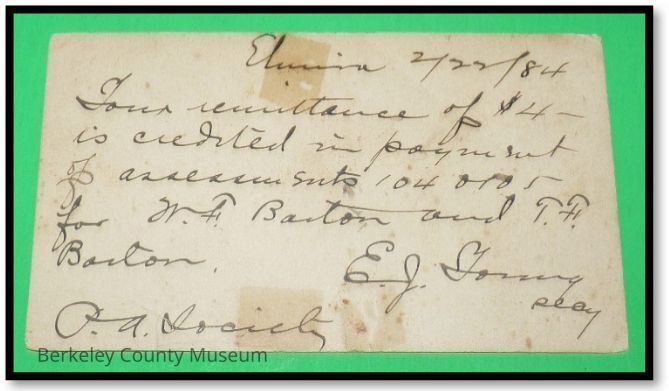 Elmira 2/22/84
Your remittance of $4—
is credited in payment
of assessments 104 & 105
for W. F. Barton and T. F.
Barton.
E. J.
secy
P. A. Society
Berkeley County Museum